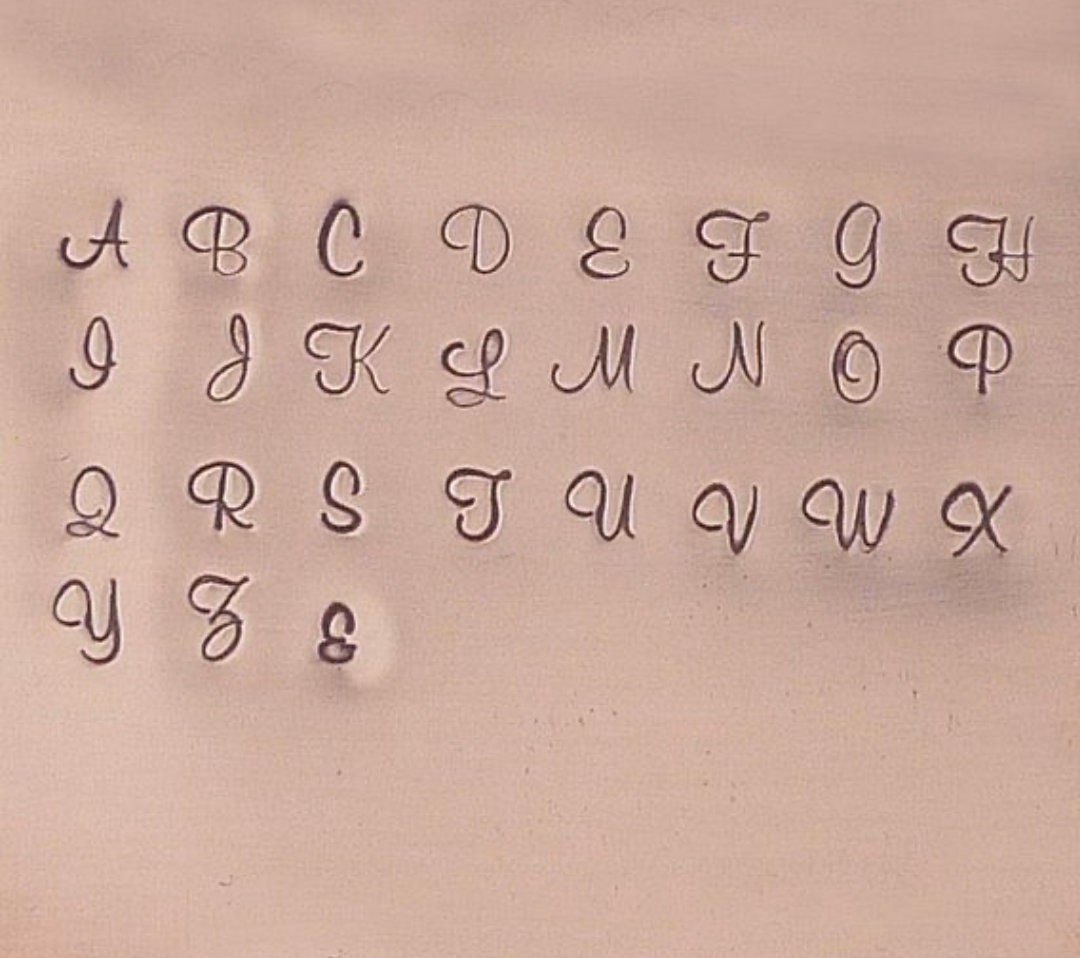 A B C D E F G H
I J K L M N O P
Q R S T U V W X
Y Z &